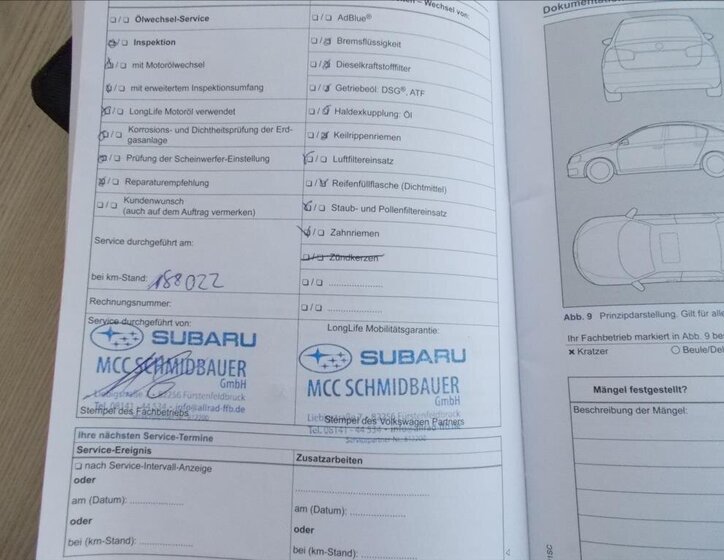 – Wechsel von:
Ölwechsel-Service
AdBlue®
Inspektion
Bremsflüssigkeit
mit Motorölwechsel
Dieselkraftstofffilter
mit erweitertem Inspektionsumfang
Getriebeöl: DSG®, ATF
LongLife Motoröl verwendet
Haldexkupplung: Öl
Korrosions- und Dichtheitsprüfung der Erd-
gasanlage
Keilrippenriemen
Prüfung der Scheinwerfer-Einstellung
Luftfiltereinsatz
Reparaturempfehlung
Reifenfüllflasche (Dichtmittel)
Kundenwunsch
(auch auf dem Auftrag vermerken)
Staub- und Pollenfiltereinsatz
Zahnriemen
Service durchgeführt am:
Zündkerzen
bei km-Stand: 188022
....................
Rechnungsnummer:
....................
Service durchgeführt von:
SUBARU
MCC SCHMIDBAUER
GmbH
82256 Fürstenfeldbruck
Tel. 08141 - 44 534 • info@allrad-ffb.de
Stempel des Fachbetriebs
LongLife Mobilitätsgarantie:
SUBARU
MCC SCHMIDBAUER
GmbH
82256 Fürstenfeldbruck
Stempel des Volkswagen Partners
Tel. 08141 - 44 534
Ihre nächsten Service-Termine
Service-Ereignis
nach Service-Intervall-Anzeige
oder
am (Datum): ....................
oder
bei (km-Stand): ....................
Zusatzarbeiten
....................
am (Datum): ....................
oder
bei (km-Stand): ....................
Abb. 9 Prinzipdarstellung. Gilt für alle
Ihr Fachbetrieb markiert in Abb. 9
× Kratzer
Mängel festgestellt?
Beschreibung der Mängel: